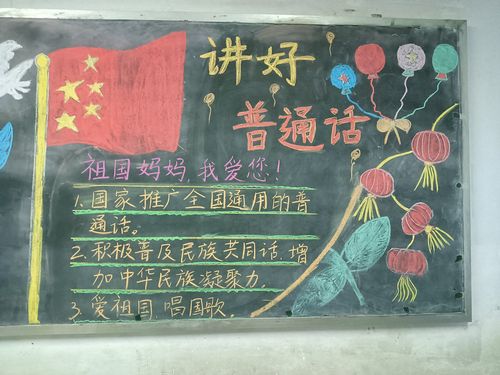 讲好
普通话
祖国妈妈,我爱您!
1.国家推广全国通用的普
通话。
2.积极普及民族共同话,增
加中华民族凝聚力.
3.爱祖国,唱国歌.